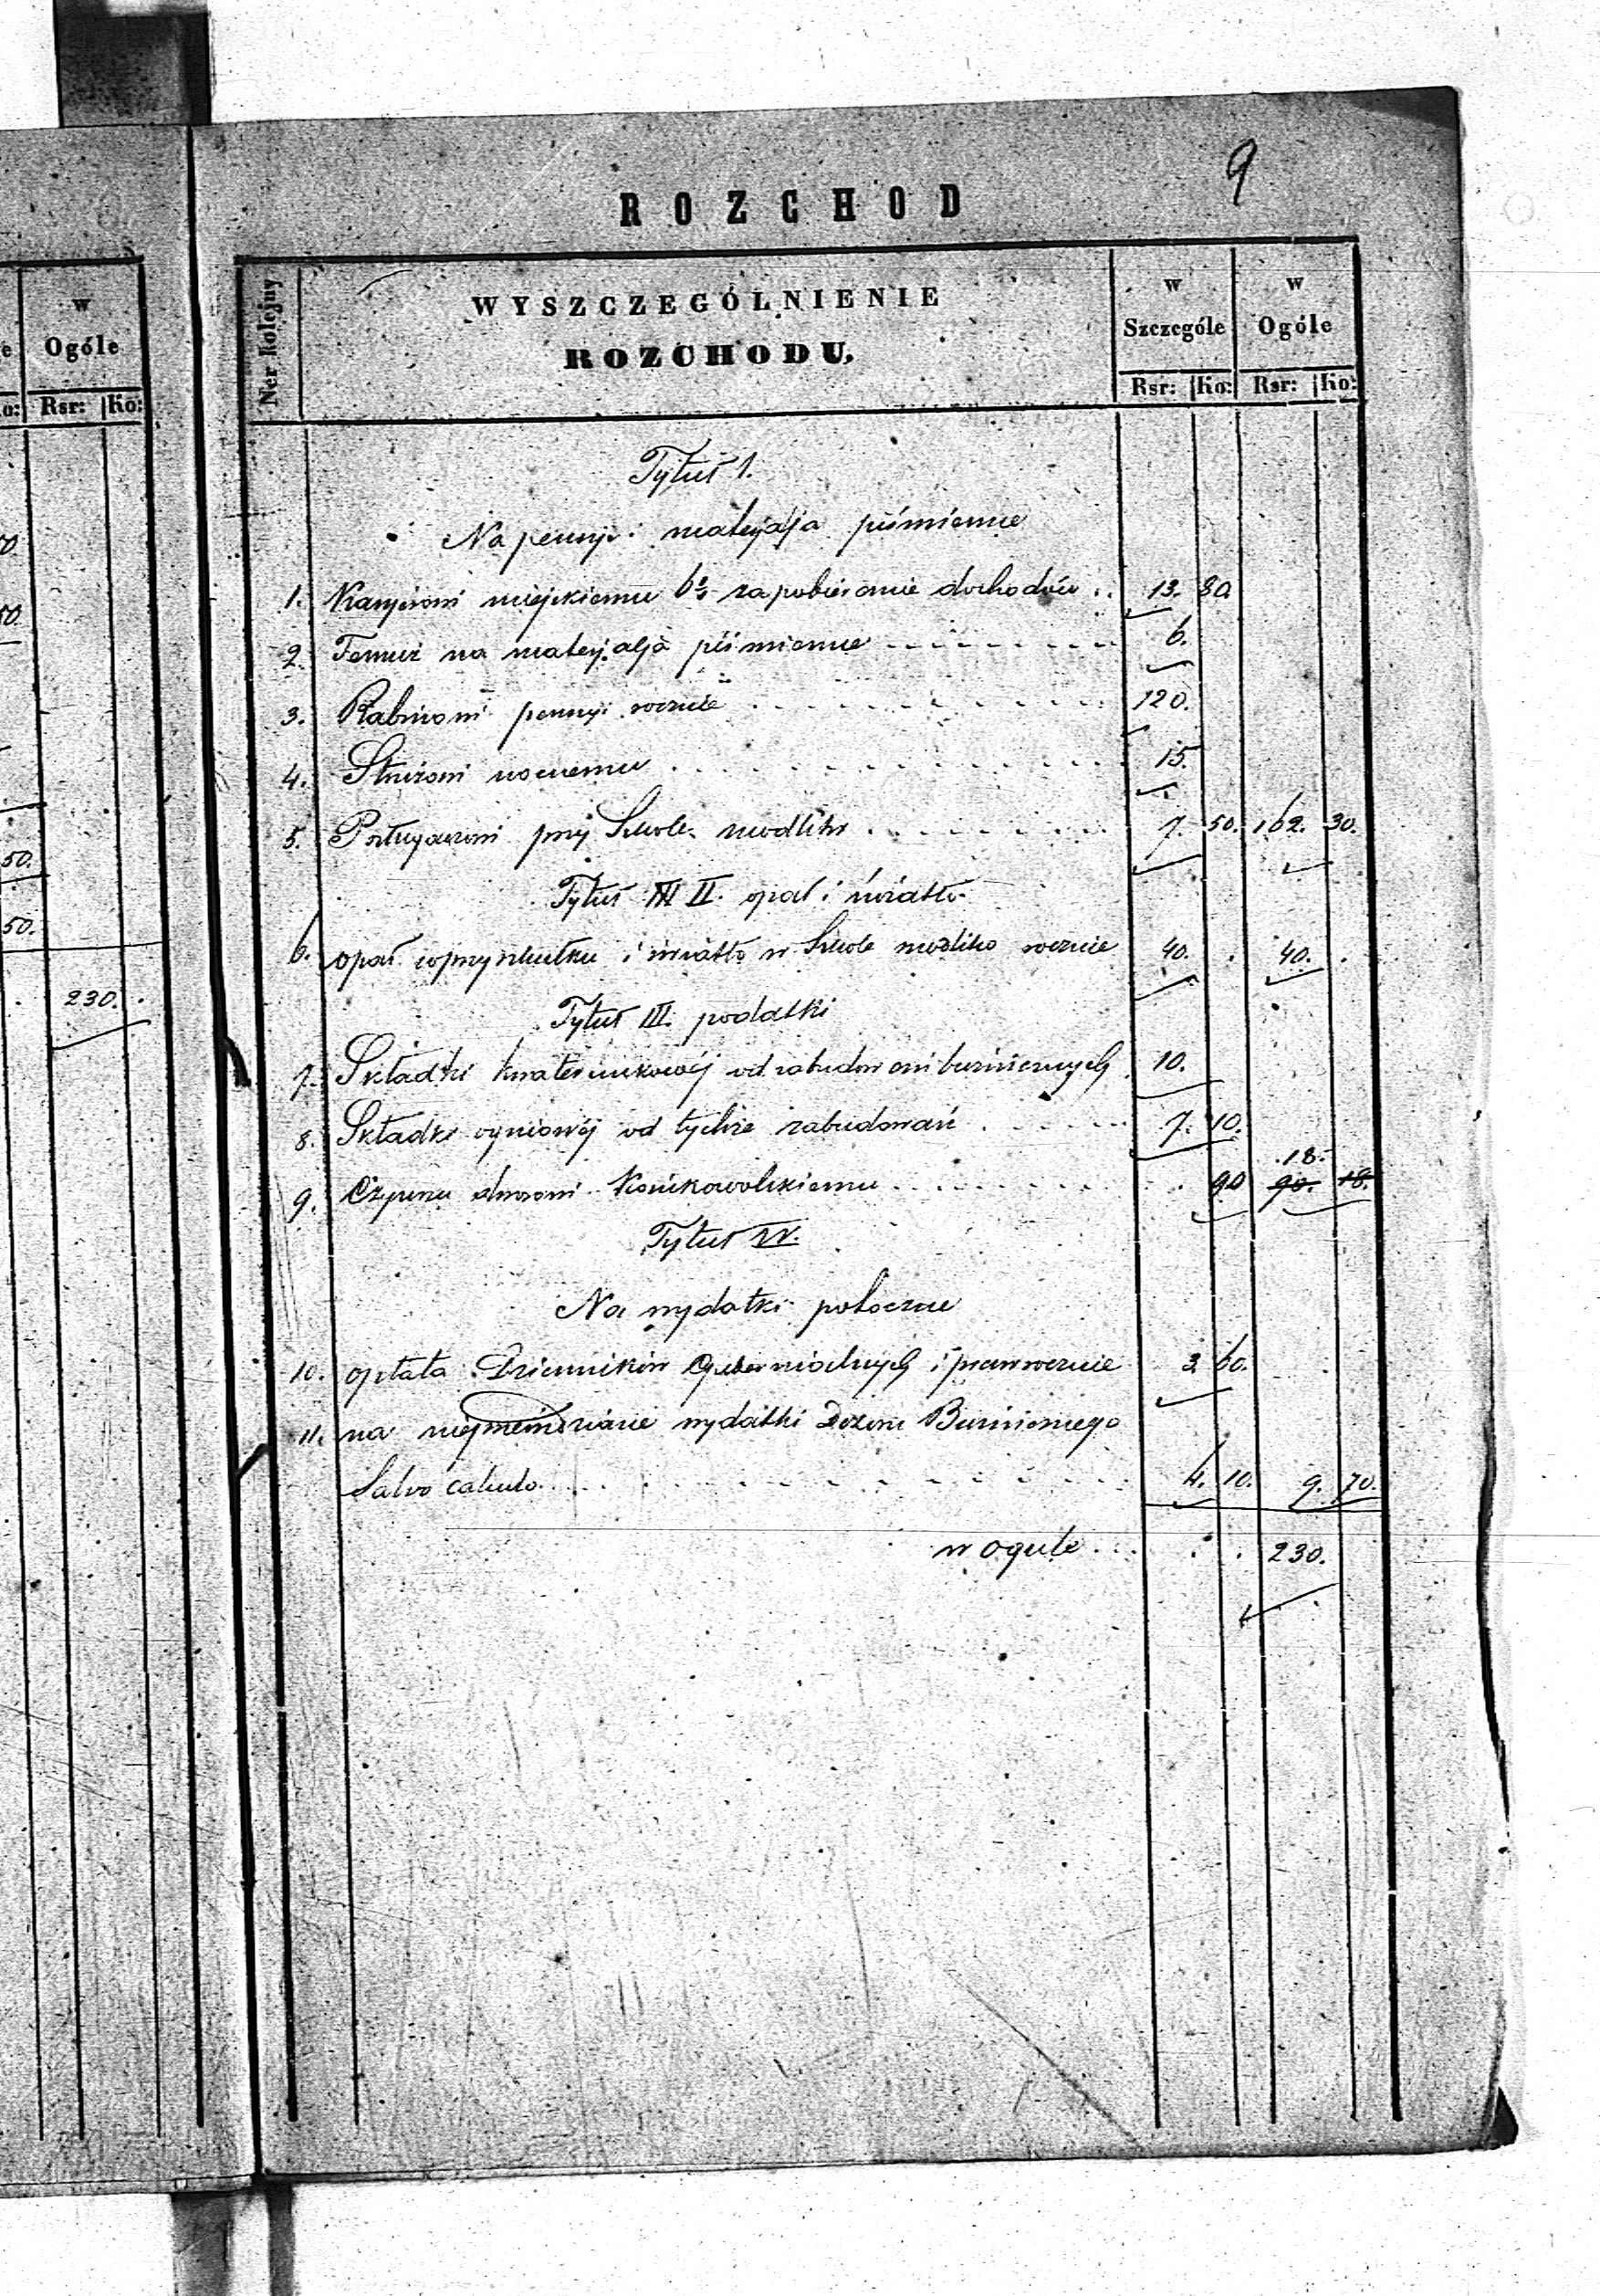 9
ROZCHOD
Ner kolejny
WYSZCZEGÓLNIENIE
ROZCHODU.
w Szczególe
w Ogóle
Rsr: Ko: Rsr: Ko:
w
Ogóle
Rsr: Ko:
Tytuł 1.
Na pensyi materyalja piśmienne
1. Kassyerowi miejskiemu za pobieranie dochodów .. 13. 80.
2. Temuż na materyalja piśmienne 6.
3. Rabinowi pensyi rocznie 120.
4. Stróżowi nocnemu 15.
5. przy Szkole modlitw 7. 50. 162. 30.
Tytuł II. opał i światło
6. opał i światło w Szkole rocznie 40. . 40. .
. 230. .
Tytuł III. podatki
7. Składki kwaterunkowéj od zabudowań bużnicznych 10.
8. Składki ogniowéj od tychże zabudowań 7. 10.
18.
9. Czynszu dworowi . 90 90. 18.
Tytuł IV.
Na wydatki poboczne
10. opłata Dzienników Gubernialnych i praw rocznie 3. 60.
11. na wydatki Dozoru Bużnicznego
Salvo calculo 4. 10. 9. 70.
w ogule . . . . . 230.
50.
50.